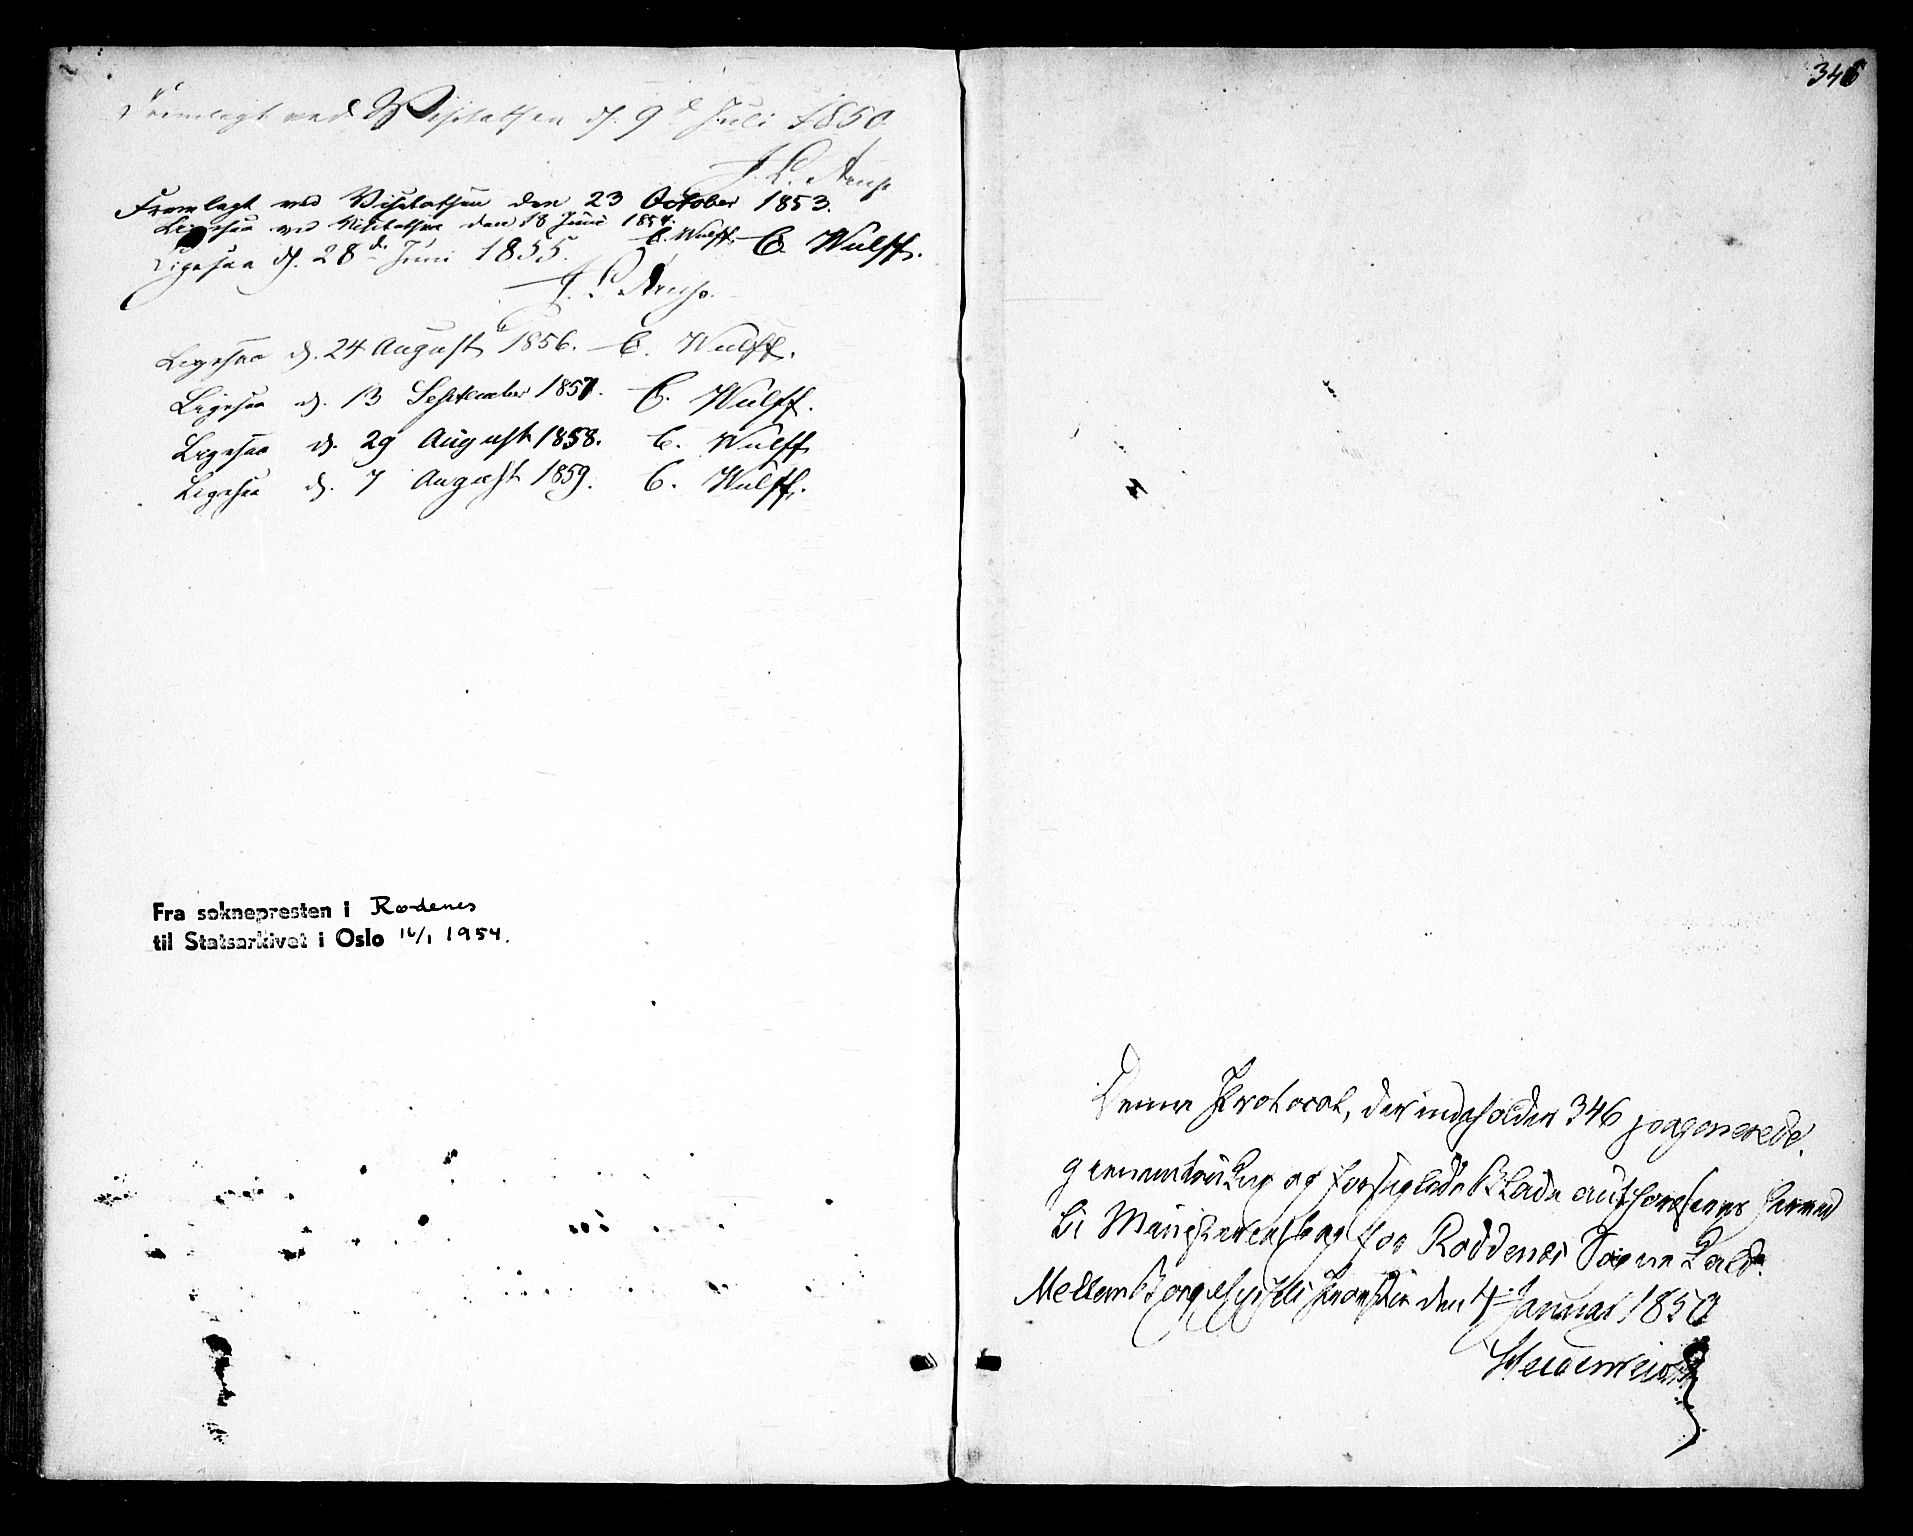 Fremlagt ved Visitatsen d. 9d Juli 1850
J. L. Arup
Fremlagt ved Visitatsen den 23 October 1853.
Ligesaa ved Visitatsen den 18 Juni 1854.
C. Wulff. C. Wulff.
Ligesaa d. 28d Juni 1855.
J. L. Arup.
Ligesaa d. 24 August 1856. C. Wulff.
Ligesaa d. 13 September 1857. C. Wulff.
Ligesaa d. 29 August 1858. C. Wulff
Ligesaa d. 7 August 1859. C. Wulff.
Fra soknepresten i Rødenes
til Statsarkivet i Oslo 16/1 1954.
346
Denne Protocol, der indeholder 346 paginerede,
og forseglede Blade authoriseres herved
til Ministerialbog for Røddenes Sognekald.
Mellem Borgesyssels Provstie den 4 Januar 1850